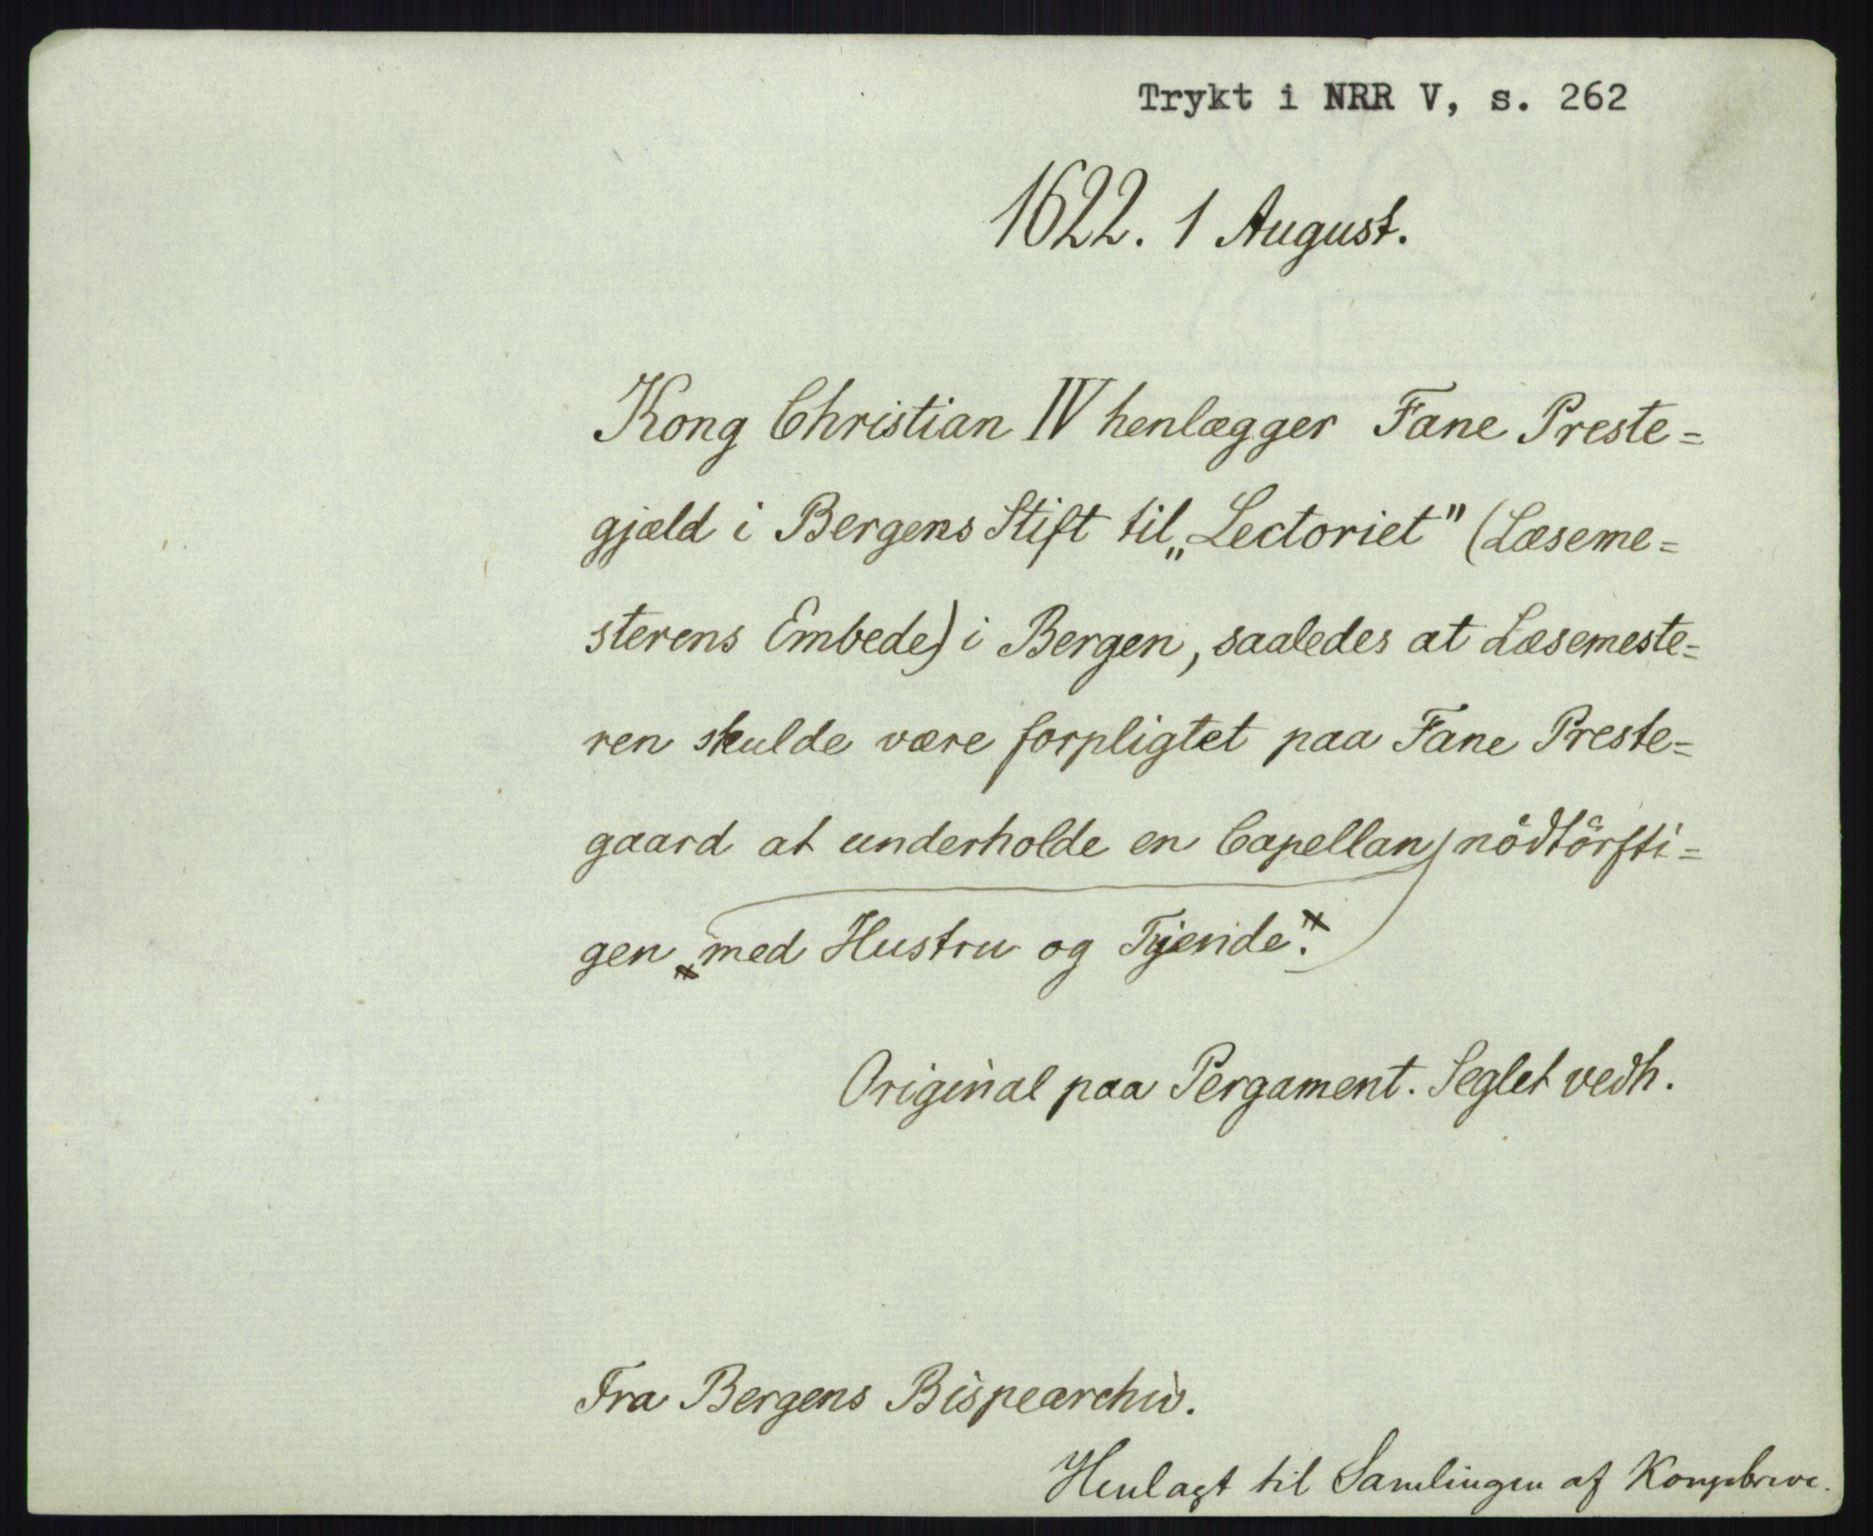 Trykt i NRR V, s. 262
1622. 1 August.
Kong Christian IV henlægger Fane Preste=
gjæld i Bergens Stift til „Lectoriet" (Læseme=
sterens Embede) i Bergen, saaledes at Læsemeste=
ren skulde være forpligtet paa Fane Preste=
gaard at underholde en Capellan nödtörfti=
gen „med Hustru og Tjende".
Original paa Pergament. Seglet vedh.
Fra Bergens Bispearchiv.
Henlagt til Samlingen af Kongebreve.